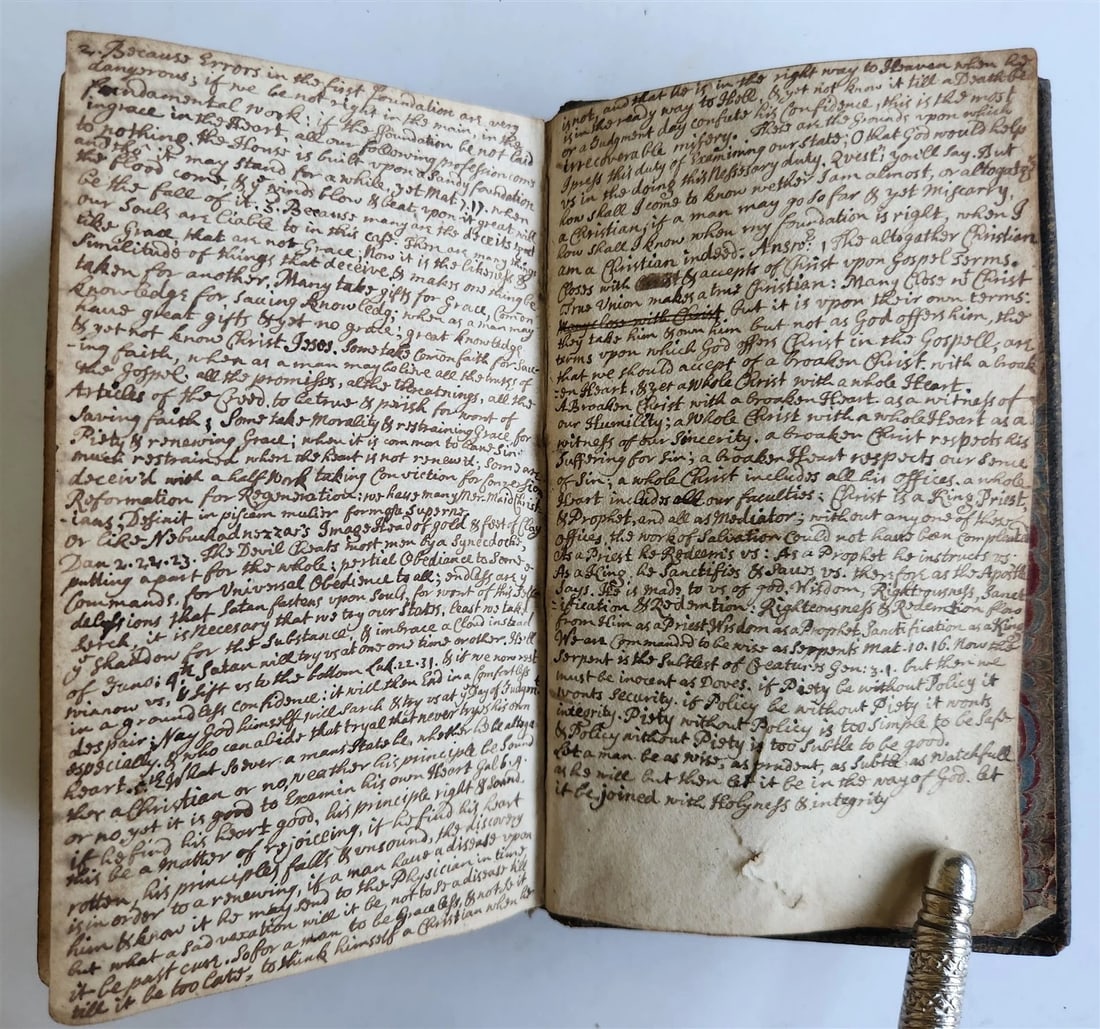 2. Because Errors in the first foundation are very
dangerous; if we be not right in the main, in the
fundamental work: if the foundation be not laid
ingrace in the Heart, all our following profession come
to nothing. the House is built upon a Sandy foundation
and tho' it may stand for a while, yet Mat 7.17. when
the flood come, & ye winds blow & beat upon it great will
be the fall of it. 3. Because many are the deceits that
our Souls are liable to in this case. There are many things
like Grace that are not Grace: Now it is the likeness &
Similitude of things that deceive, & makes one thing be
taken for another. Many take gifts for Grace, Comon
knowledge for Saving knowledg; when as a man may
have great gifts & yet no grace; great knowledge
& yet not know Christ Jesos. Some take Comon faith for Save
-ing faith, when as a man may believe all the truths of
the Gospel, all the promises, al the threatnings, all the
Articles of the Creed, to be true & perish for want of
Saving faith; Some take Morality & restraining Grace, for
Piety & renewing Grace; when it is common to have Sin
much restrained where the heart is not renew'd; Some are
deceiv'd with a half work taking Conviction for
Reformation for Regeneration: we have many Mer-Maid Christ
-ians: Definit in piscam mulier formosa Superne
or like Nebuchadnezzar's Image Head of gold & feet of Clay
Dan 2. The Devil Cheats most men by a Synecdoche,
putting a part for the whole; partial Obediance to Some
Commands, for Universal Obedience to all; endless are ye
delusions that Satan fastens upon Souls, for want of this Self
serch, it is necesary that we try our States. Least we take
ye Shaddow for the Substance, & imbrace a Cloud instead
of Juno: 4th Satan will try us at one one time or other. He'll
winnow us, & sift us to the bottom Luk. 22. 31. & if we now rest
in a groundless confidence: it will then End in a Comfortless
despair; Nay God himself will Sarch & try us at ye day of Judgmt
especially. & who can abide that tryal that never trys his own
heart. 5. What So ever a mans State be, whether he be altoga
ther a Christian or no, weather his principle be Sound
or no, yet it is good to Examin his own Heart Gal 6. 9.
if he find his heart good, his principle right & Sound.
this be a matter of rejoicing, if he find his heart
rotten, his principles falls & unsound, the discovery
is in order to a renewing, if a man have a disease upon
him & know it he may send to the Physician in time,
but what a sad vexation will it be, not to see a disease till
it be past cure. So for a man to be Graceless, & not see it
till it be too late, to think himself a Christian when he
is not, and that he is in the right way to Heaven when he
is in the ready way to Hell, & yet not know it till a Death be
or a Judgment day confute his Confidence, this is the most
irrecoverable misery. These are the Grounds upon which
I press this duty of Examining our state; O that God would help
us in the doing this Nessesary duty. Quest: you'll say. But
how shall I come to know wether I am almost, or altogather
a Christian, if a man may go So far & yet Miscarry,
how shall I know when my foundation is right, when I
am a Christian indeed. Answr: 1 The altogather Christian
Closes with & accepts of Christ upon Gospel Terms.
True Union makes a true Christian: Many Close wt Christ
Many lose with Christ but it is upon their own terms:
they take him & own him but not as God offers him, the
terms upon which God offers Christ in the Gospell, are
that we should accept of a broaken Christ. with a broak
-en Heart. & yet a whole Christ with a whole Heart.
A Broaken Christ with a broaken Heart. as a witness of
our Humility; a whole Christ with a whole Heart as a
witness of our Sincerity. a broaken Christ respects his
Suffering for Sin; a broaken Heart respects our Sense
of Sin; a whole Christ includes all his offices. a whole
Heart includes all our faculties: Christ is a King, Priest,
& Prophet, and all as Mediator; without any one of these
offices, the work of Salvation could not have been Compleated
As a Priest he Redeem's us: As a Prophet he instructs us:
As a King, he Sanctifies & Saves us. therfore as the Apostle
Says. He is made to us of god, Wisdom, Rightousness, Sanct
-ification & Redemtion: Righteousness & Redemtion flow
from Him as a Priest Wisdom as a Prophet Sanctification as a King
We are Commanded to be wise as Serpents Mat. 10. 16. Now the
Serpent is the Subtlest of Creatures Gen: 3. 1. but then we
must be inocent as Doves. if Piety be without Policy it
wonts Security. if Policy be without Piety it wonts
integrity. Piety without Policy is too simple to be Safe
& Policy without Piety is too Subtle to be good.
Let a man be as wise, as prudent, as Subtle as Watchfull
as he will but then let it be in the way of God. let
it be joined with Holyness & integrity